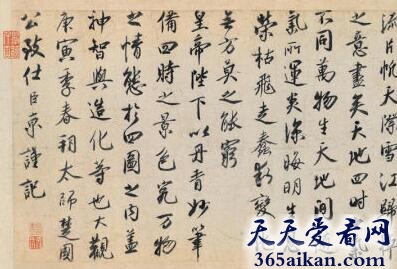 流片帆天際雪江歸
之意盡矣天地四時
不同萬物生天地間
氣所運炎涼晦明生
榮枯飛走蠢動變
無方莫之能窮
皇帝陛下以丹青妙筆
備四時之景色究万物
之情態於四圖之内蓋
神智與造化等也大觀
庚寅季春朔太師楚國
公致仕臣京謹記
天天爱看网
www.365aixian.com